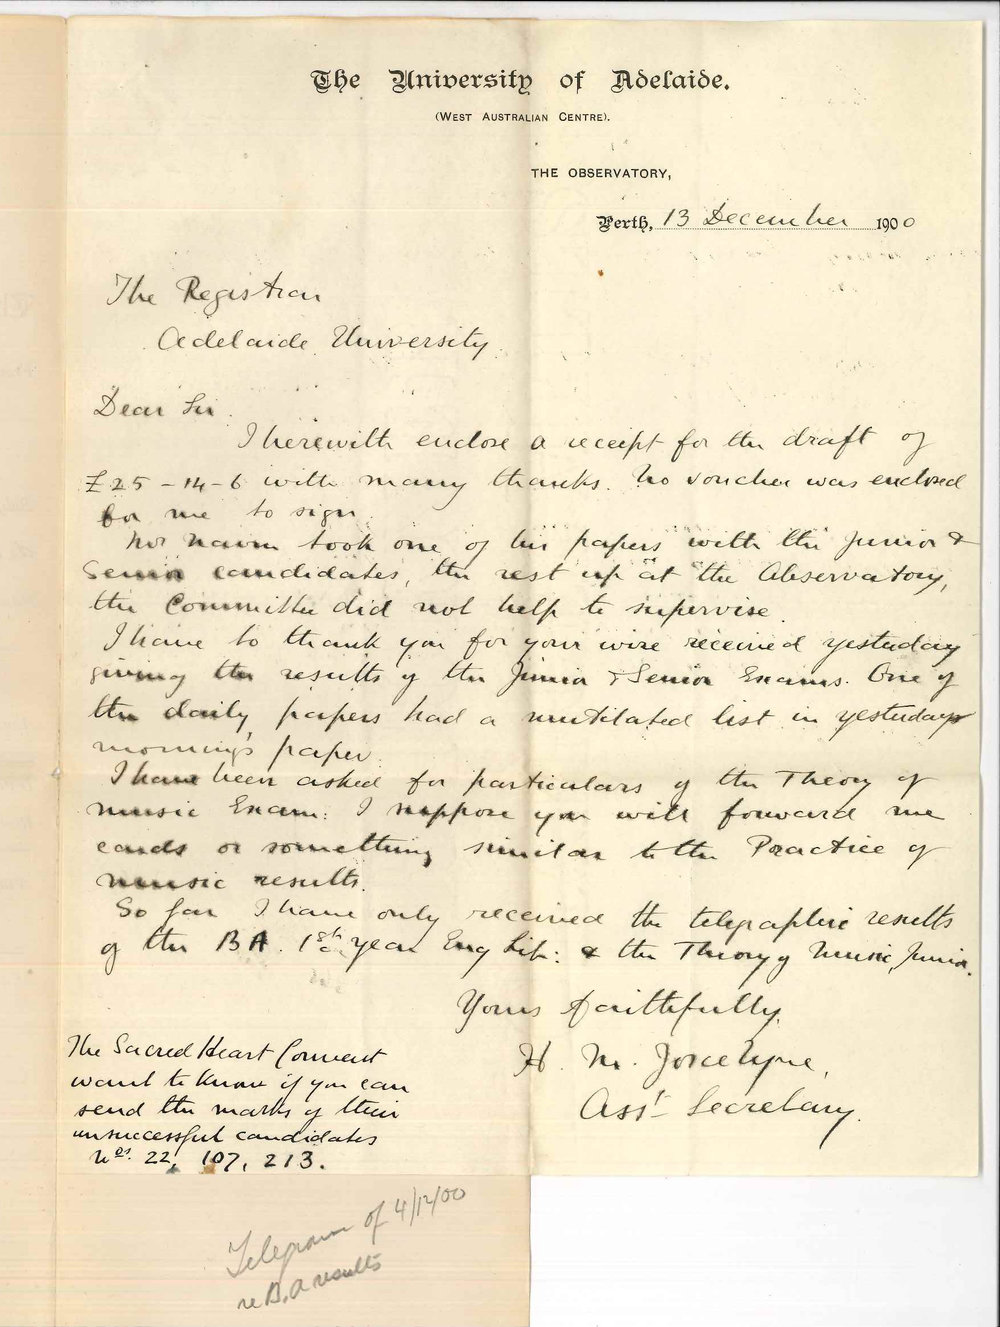 The University of Adelaide.
(WEST AUSTRALIAN CENTRE).
THE OBSERVATORY,
Perth, 13 December 1900
The Registrar
Adelaide University.
Dear Sir.
I herewith enclose a receipt for the draft of
£25-14-6 with many thanks. No voucher was enclosed
for me to sign.
Mr took one of his papers with the Junior &
Senior candidates, the rest up at the Observatory,
the Committee did not help to supervise.
I have to thank you for your wire received yesterday
giving the results of the Junior & Senior Exams. One of
the daily papers had a mutilated list in yesterdays
morning's paper.
I have been asked for particulars of the Theory of
music Exam: I suppose you will forward me
cards or something similar to the Practice of
music results.
So far I have only received the telegraphic results
of the BA. 1st year Eng Lit: & the Theory of Music, Junior.
Yours faithfully,
H. M. Jocelyne,
Asst Secretary.
The Sacred Heart Convent
want to know if you can
send the marks of their
unsuccessful candidates
Nos. 22, 107, 213.
Telegram of 4/12/00
re B.A results